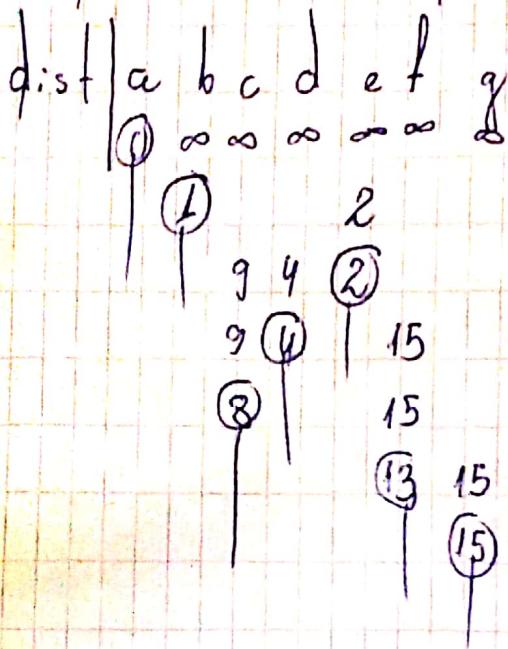 dist | a b c d e f g
0 ∞ ∞ ∞ ∞ ∞ ∞
1 2
9 4 2
9 4 15
8 15
13 15
15